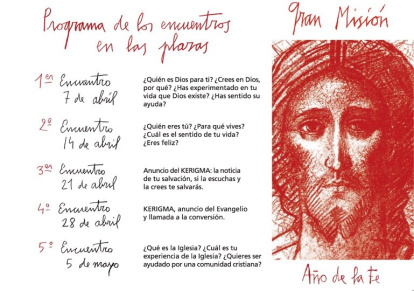 Programa de los encuentros
en las plazas
1er Encuentro
7 de abril
¿Quién es Dios para ti? ¿Crees en Dios,
por qué? ¿Has experimentado en tu
vida que Dios existe? ¿Has sentido su
ayuda?
2º Encuentro
14 de abril
¿Quién eres tú? ¿Para qué vives?
¿Cuál es el sentido de tu vida?
¿Eres feliz?
3er Encuentro
21 de abril
Anuncio del KERIGMA: la noticia
de tu salvación, si la escuchas y
la crees te salvarás.
4º Encuentro
28 de abril
KERIGMA, anuncio del Evangelio
y llamada a la conversión.
5º Encuentro
5 de mayo
¿Qué es la Iglesia? ¿Cuál es tu
experiencia de la Iglesia? ¿Quieres ser
ayudado por una comunidad cristiana?
Gran Misión
Año de la fe